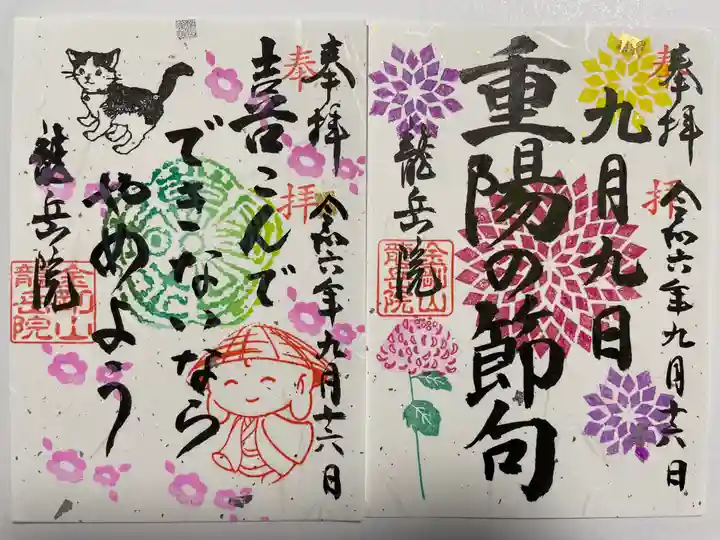 奉拝
奉拝
令和六年九月十六日
喜こんで
できないなら
やめよう
龍岳院
金剛山
龍岳院
奉拝
奉拝
令和六年九月十六日
九月九日
重陽の節句
龍岳院
金剛山
龍岳院